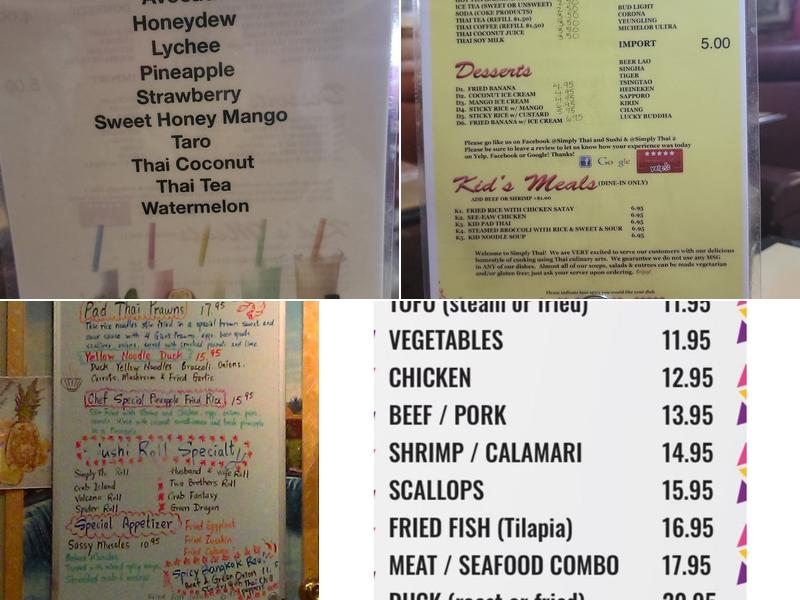 Honeydew
Lychee
Pineapple
Strawberry
Sweet Honey Mango
Taro
Thai Coconut
Thai Tea
Watermelon
ICE TEA (SWEET OR UNSWEET)
SODA (COKE PRODUCTS)
THAI TEA (REFILL $1.50)
THAI COFFEE (REFILL $1.50)
THAI COCONUT JUICE
THAI SOY MILK
BUD LIGHT
CORONA
YEUNGLING
MICHELOB ULTRA
IMPORT 5.00
BEER LAO
SINGHA
TIGER
TSINGTAO
HEINEKEN
SAPPORO
KIRIN
CHANG
LUCKY BUDDHA
Desserts
D1. FRIED BANANA 4.95
D2. COCONUT ICE CREAM
D3. MANGO ICE CREAM
D4. STICKY RICE w/ MANGO
D5. STICKY RICE w/ CUSTARD
D6. FRIED BANANA w/ ICE CREAM 6.95
Please go like us on Facebook @Simply Thai and Sushi & @Simply Thai 2
Please be sure to leave a review to let us know how your experience was today
on Yelp, Facebook or Google! Thanks!
Google
yelp
Kid's Meals (DINE-IN ONLY)
ADD BEEF OR SHRIMP +$1.00
K1. FRIED RICE WITH CHICKEN SATAY 6.95
K2. SEE-EAW CHICKEN 6.95
K3. KID PAD THAI 6.95
K4. STEAMED BROCCOLI WITH RICE & SWEET & SOUR 6.95
K5. KID NOODLE SOUP 6.95
Welcome to Simply Thai! We are VERY excited to serve our customers with our delicious
homestyle of cooking using Thai culinary arts. We guarantee we do not use any MSG
in ANY of our dishes. Almost all of our soups, salads & entrees can be made vegetarian
and/or gluten free; just ask your server upon ordering. Enjoy!
Please indicate how spicy you would like your dish
Pad Thai Prawns 17.95
Thai rice noodles stir fried in a special brown sweet and
sour sauce with 4 Giant Prawns, eggs, bean sprouts
scallions, onions, served with crushed peanuts and lime
Yellow Noodle Duck 15.95
Duck Yellow Noodles Broccoli Onions.
Carrots, Mushroom & Fried Garlic
Chef Special Pineapple Fried Rice 15.95
Stir Fried with Shrimp and Chicken, eggs, onions, peas,
in a Pineapple
Sushi Roll Specialty
Simply Thai Roll
Crab Island
Volcano Roll
Spider Roll
Husband & Wife Roll
Two Brothers Roll
Crab Fantasy
Green Dragon
Special Appetizer
Sassy Mussles 10.95
Fried Eggplant
Fried Zucchini
Fried Calamari
Spicy Bangkok
Beef & Green Onion
TOFU (steam or fried) 11.95
VEGETABLES 11.95
CHICKEN 12.95
BEEF / PORK 13.95
SHRIMP / CALAMARI 14.95
SCALLOPS 15.95
FRIED FISH (Tilapia) 16.95
MEAT / SEAFOOD COMBO 17.95
DUCK (roast or fried) 20.95